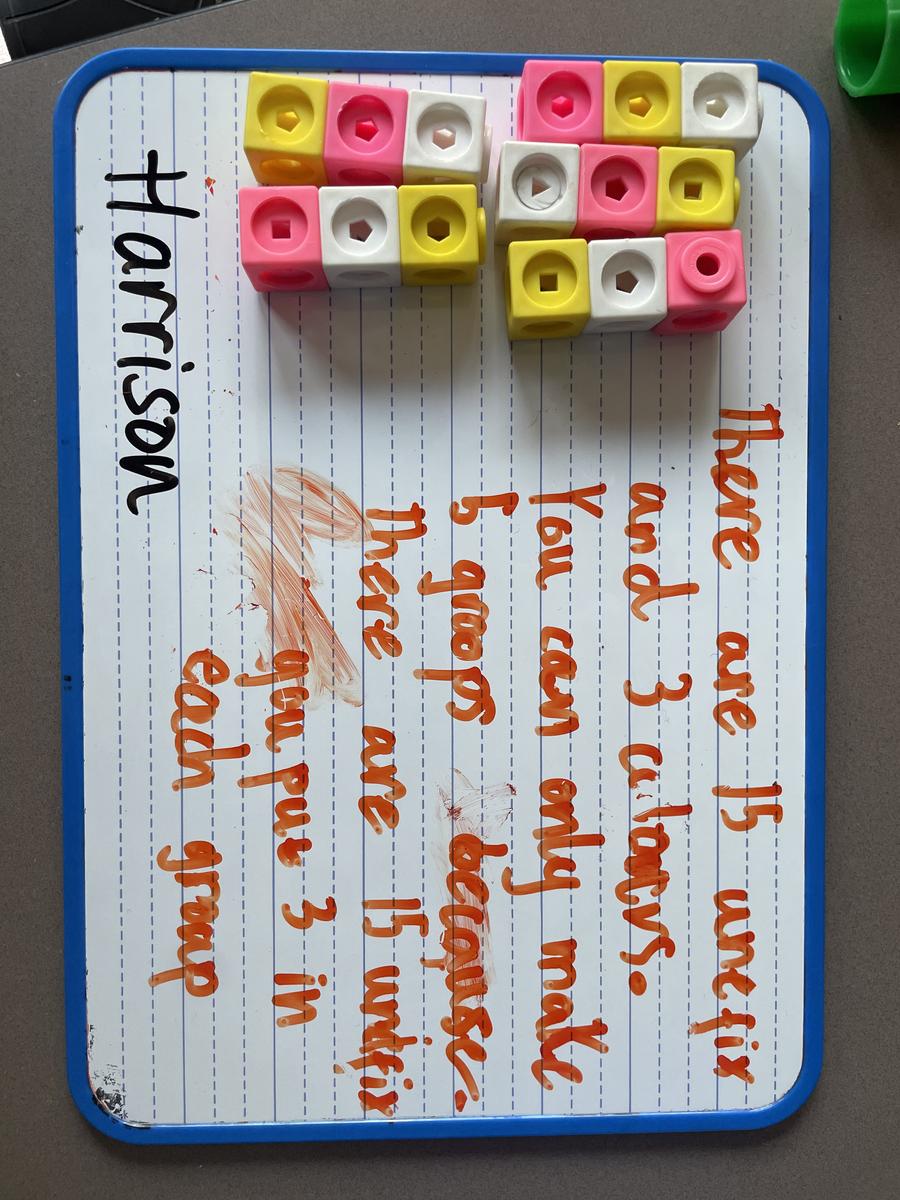 There are 15 unefix
and 3 calatvs.
You can only make
5 groops because.
There are 15 unifix
you put 3 in
each group
Harrison